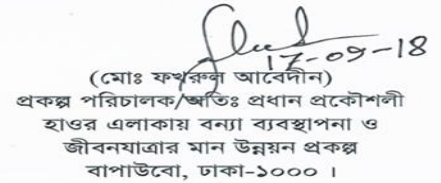 17-09-18
(মোঃ ফখরুল আবেদীন)
প্রকল্প পরিচালক/অতিঃ প্রধান প্রকৌশলী
হাওর এলাকায় বন্যা ব্যবস্থাপনা ও
জীবনযাত্রার মান উন্নয়ন প্রকল্প
বাপাউবো, ঢাকা-১০০০ ।